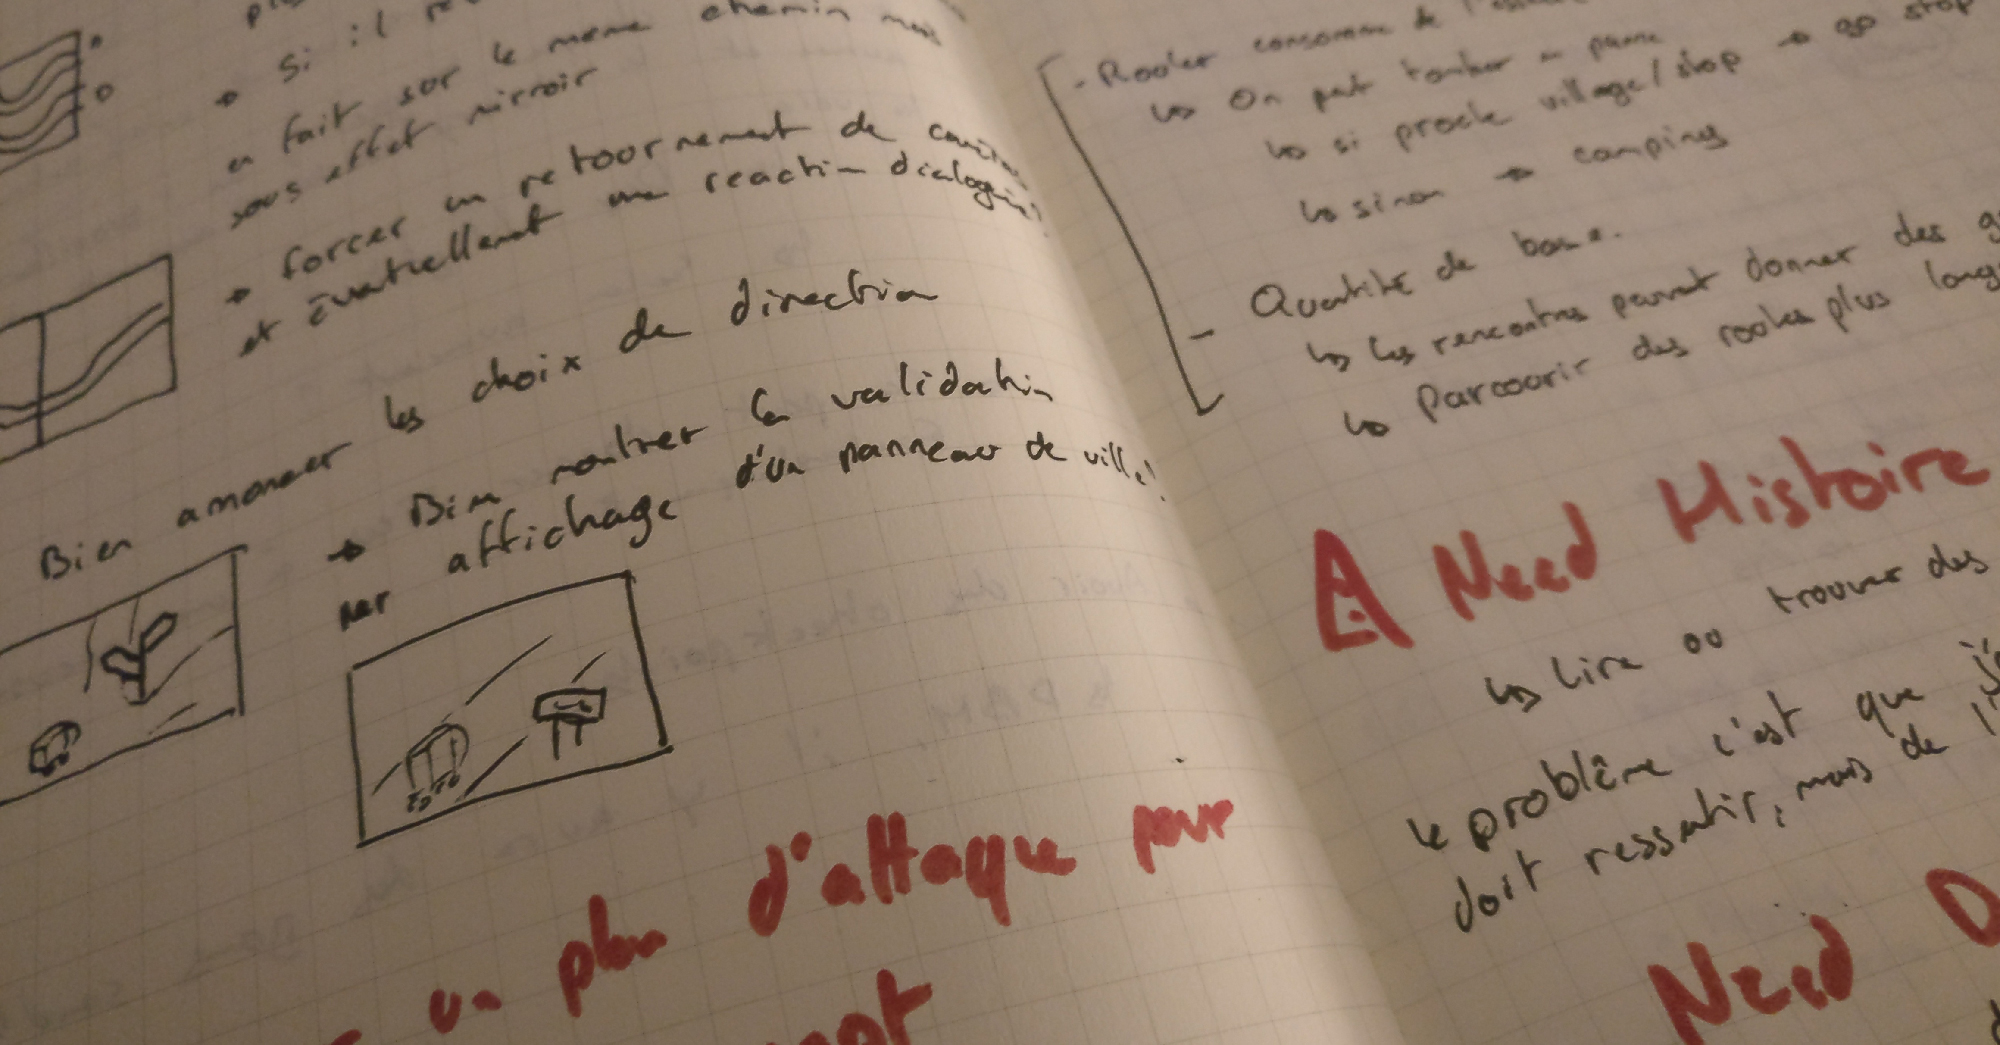 → si il re
en fait sur le meme chemin mais
sous effet mirroir
→ forcer un retournement de
et éventuellement une reaction dialogue
Bien amoner les choix de direction
→ Bien montrer la validation
par affichage d'un panneau de ville!
un plan d'attaque pour
- Rouler consomme de l'
↳ On peut tomber en panne
↳ si proche village/stop → go stop
↳ sinon → camping
- Quantité de base.
↳ les rencontres peuvent donner des
↳ Parcourir des routes plus
⚠ Need Histoire
↳ lire ou trouver des
le problème c'est que
doit ressentir, mais de l'
Need